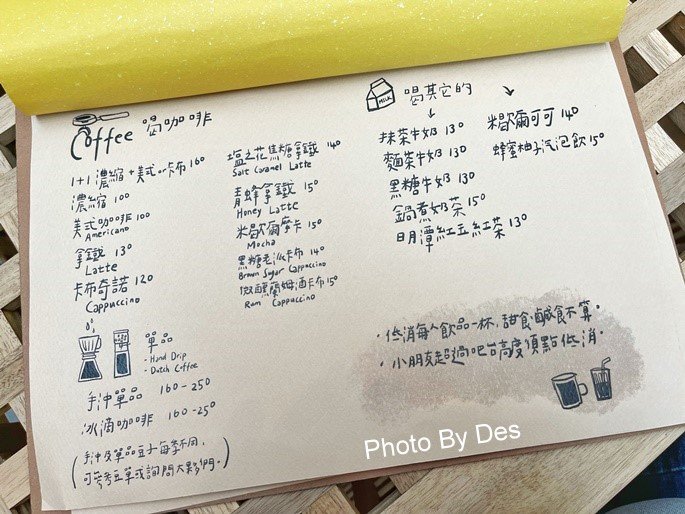 Coffee 喝咖啡
1+1 濃縮+美式or卡布 160
濃縮 100
美式咖啡 100
Americano
拿鐵 130
Latte
卡布奇諾 120
Cappuccino
鹽之花焦糖拿鐵 140
Salt Caramel Latte
青蜂拿鐵 150
Honey Latte
米歇爾摩卡 150
Mocha
黑糖老派卡布 140
Brown Sugar Cappuccino
微醺蘭姆酒卡布 150
Rum Cappuccino
單品
- Hand Drip
- Dutch Coffee
手沖單品 160-250
冰滴咖啡 160-250
(手沖及單品豆子每季不同,
可參考豆單或詢問大夥們。)
MILK
喝其它的
抹茶牛奶 130
麵茶牛奶 130
黑糖牛奶 130
鍋煮奶茶 150
日月潭紅玉紅茶 130
米歇爾可可 140
蜂蜜柚子汽泡飲 150
·低消每人飲品一杯,甜食鹹食不算。
·小朋友超過吧台高度須點低消。
Photo By Des